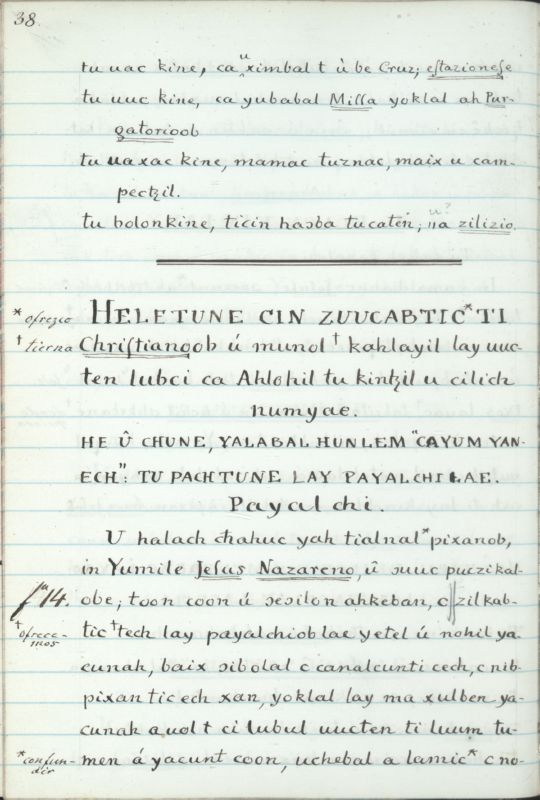 38.
tu uac kine, ca u ximbal t ù be Cruz; estazionese
tu uuc kine, ca yubabal Missa yoklal ah Pur-
gatorioob
tu uaxac kine, mamac tuznac, maix u cam-
pectzil.
tu bolonkine, ticin haɔba tucaten; u? na zilizio.
* ofrezco HELETUNE CIN ZUUCABTIC* TI
† tierna Christianoob ú munol† kahlayil lay uuc-
ten lubci ca Ahlohil tu kintzil u cilich
numyae.
HE Û CHUNE, YALABAL HUNLEM "CAYUM YAN-
ECH": TU PACHTUNE LAY PAYALCHILAE.
Payal chi.
U halach chahuc yah tialnal* pixanob,
in Yumile Jesus Nazareno, û ɔuuc puczikal-
fo 14. obe; toon coon ú ɔeɔilon ahkeban, c zilkab-
† ofrece-mos tic† tech lay payalchioblae yetel ú nohil ya-
cunah, baix ɔibolal c canalcunti cech, c nib-
pixan tic ech xan, yoklal lay ma xulben ya-
cunah a uol t ci lubul uucten ti luum tu-
* confun-dir men á yacunt coon, uchebal a lamic* c no-